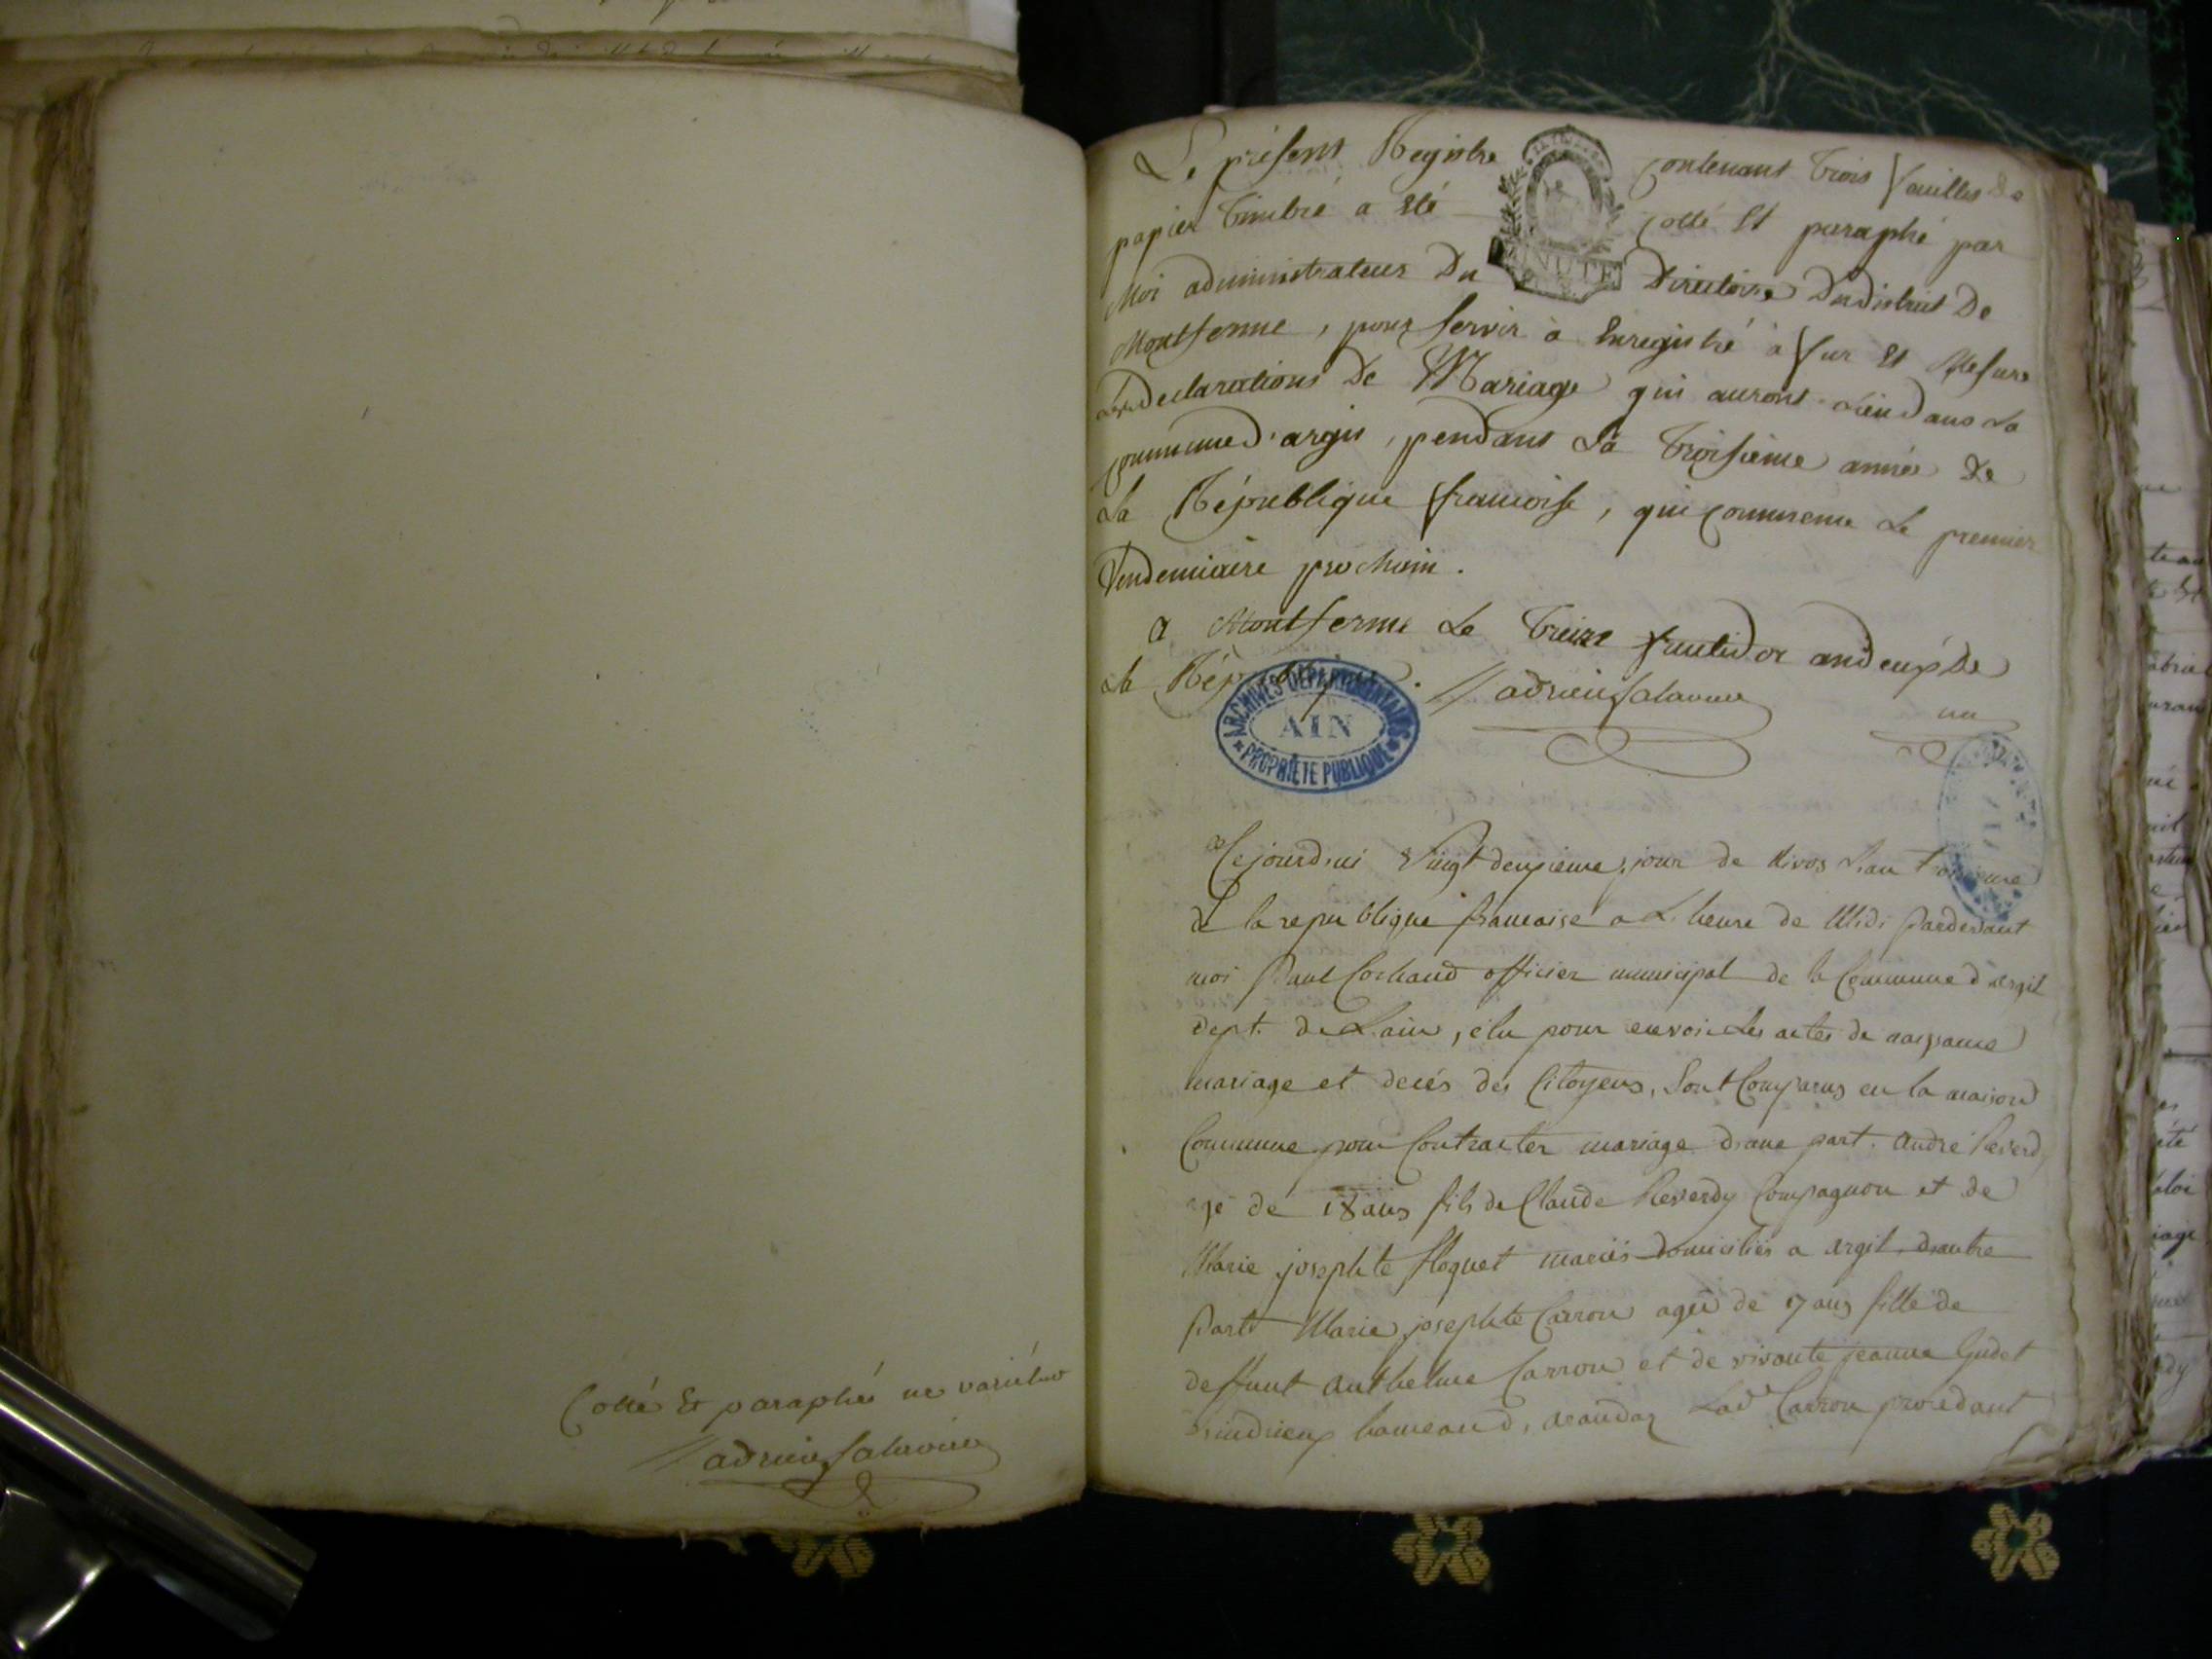 Cotté Et paraphé ne variétur
adrien Salavuire
Le présent Registre contenant trois feuilles de
papier timbré a été cotté Et paraphé par
Moi administrateur Du Directoire Du district De
Montferme, pour servir à Enregistré à fur Et Mesure
Les Declarations De Mariage qui auront Lieu Dans La
commune D'argis, pendant La troisieme année De
La République francoise, qui commence Le premier
Vendemiaire prochain.
a Montferme Le treize fructidor an deux De
La République.
adrien
un
MINUTE
ARCHIVES DÉPARTEMENTALES
AIN
PROPRIÉTÉ PUBLIQUE
Cejourdhui Vingt deuxieme jour de Nivos L'an troisieme
de la republique francaise a L'heure de Midi Pardevant
moi Paul Cochand officier municipal de la Commune d'argil
dept. de L'ain, élu pour les actes de naissance
mariage et decés des Citoyens, Sont Comparus en la maison
Commune pour Contracter mariage d'une part. andré Reverdy
agé de 18 ans fils de Claude Reverdy Compagnon et de
Marie josephte floquet mariés domiciliés a argil, d'autre
Part Marie josephte Carron agée de 17 ans fille de
deffunt anthelme Carron et de vivante jeanne Gudet
hameau d. Lad. Carron procedant